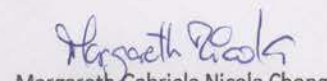 Margareth Nicola
Margareth Gabriele Nicola Chong